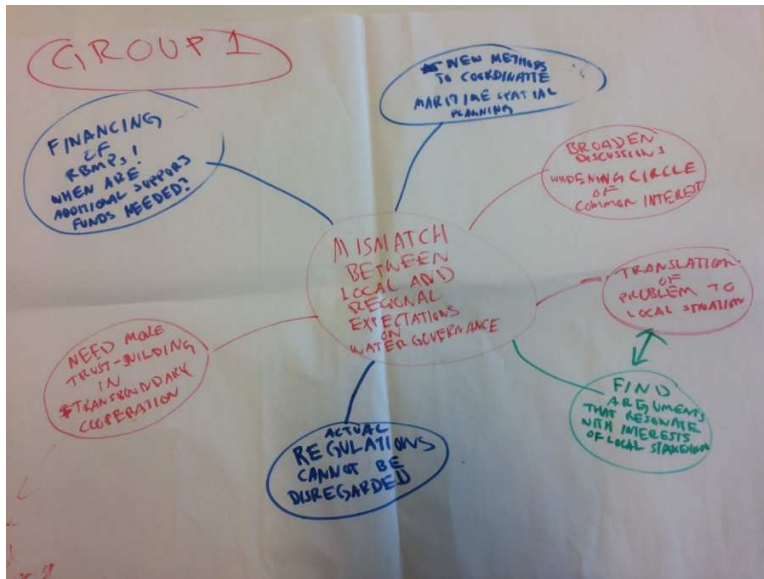 GROUP 1
FINANCING
OF
RBMPS!
WHEN ARE
ADDITIONAL SUPPORT
FUNDS NEEDED?
NEW METHODS
TO COORDINATE
MARITIME SPATIAL
PLANNING
BROADEN
DISCUSSIONS
WIDENING CIRCLE
OF
COMMON INTEREST
MISMATCH
BETWEEN
LOCAL AND
REGIONAL
EXPECTATIONS
ON
WATER GOVERNANCE
TRANSLATION
OF
PROBLEM TO
LOCAL SITUATION
NEED MORE
TRUST-BUILDING
IN
TRANSBOUNDARY
COOPERATION
FIND
ARGUMENTS
THAT RESONATE
WITH INTERESTS
OF LOCAL
ACTUAL
REGULATIONS
CANNOT BE
DISREGARDED